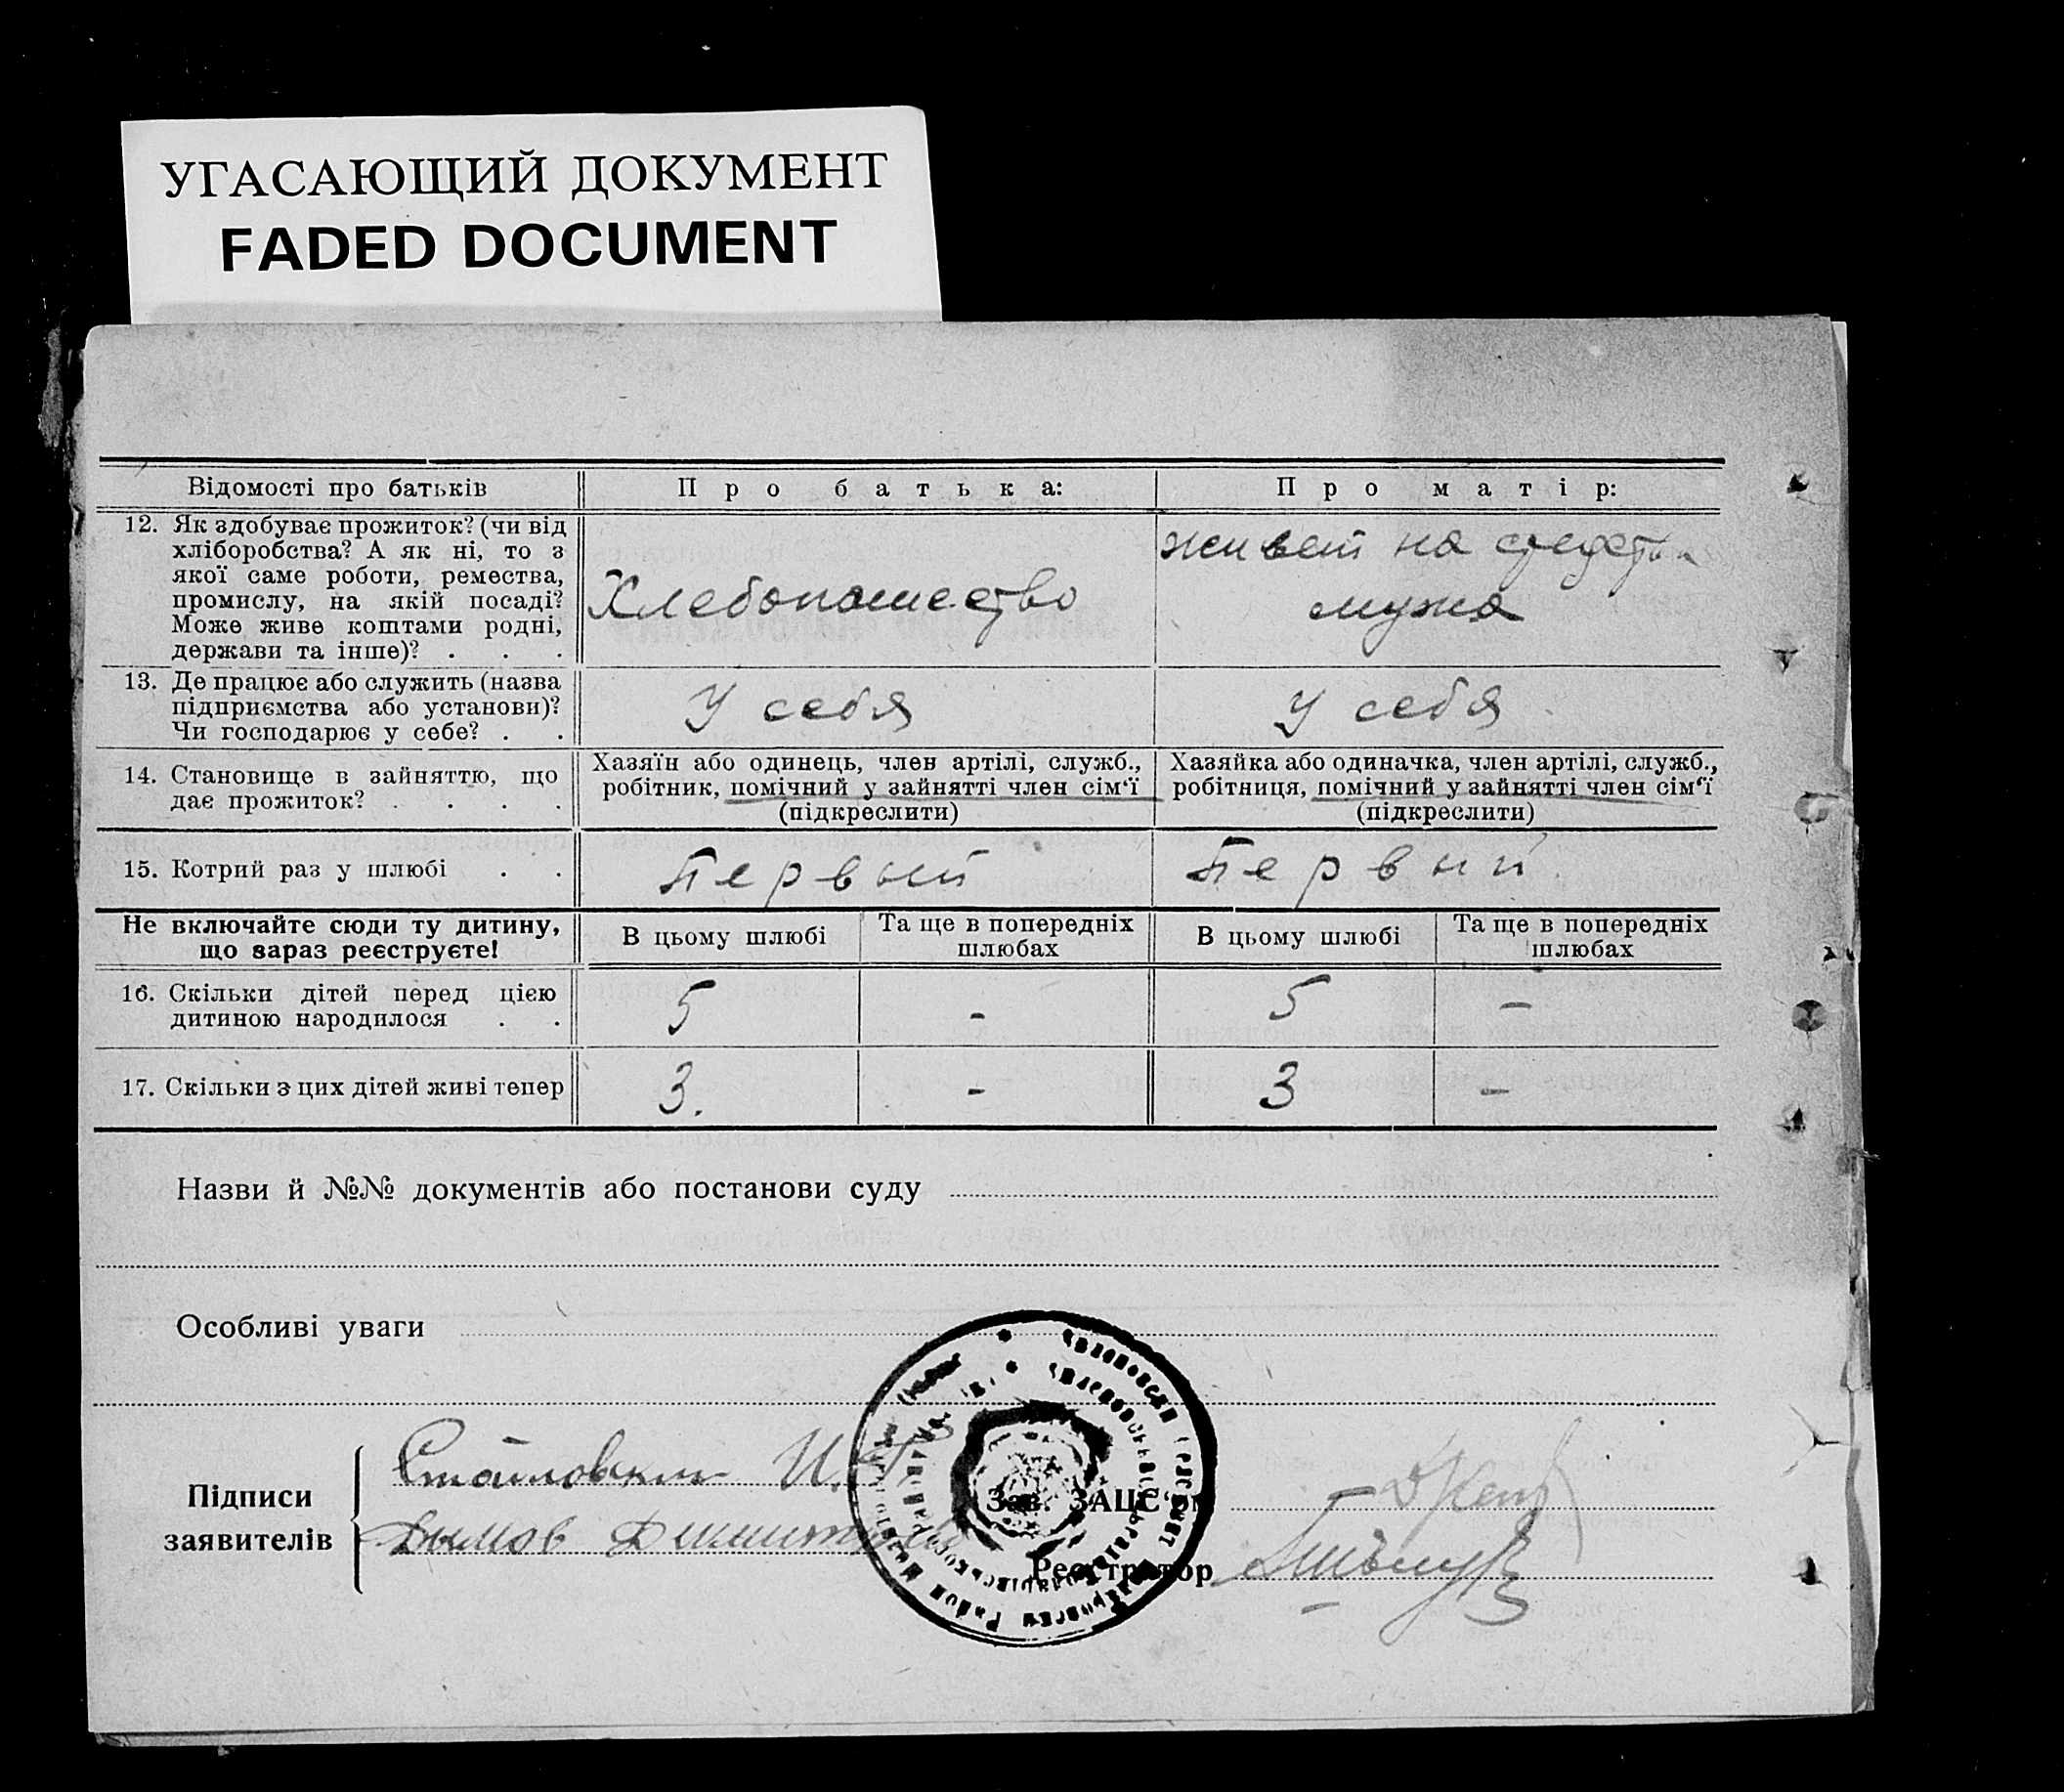 УГАСАЮЩИЙ ДОКУМЕНТ
FADED DOCUMENT
Відомості про батьків
Про батька:
Про матір:
12. Як здобуває прожиток? (чи від
хліборобства? А як ні, то з
якої саме роботи, ремества,
промислу, на якій посаді?
Може живе коштами родні,
держави та інше)? . . .
Хлебопашество
живет на средства
мужа
13. Де працює або служить (назва
підприємства або установи)?
Чи господарює у себе? . .
У себя
У себя
14. Становище в зайняттю, що
дає прожиток? . . . .
Хазяїн або одинець, член артілі, служб.,
робітник, помічний у зайнятті член сім'ї
(підкреслити)
Хазяйка або одиначка, член артілі, служб.,
робітниця, помічний у зайнятті член сім'ї
(підкреслити)
15. Котрий раз у шлюбі . .
Первый
Первый
Не включайте сюди ту дитину,
що зараз реєструєте!
В цьому шлюбі
Та ще в попередніх
шлюбах
В цьому шлюбі
Та ще в попередніх
шлюбах
16. Скільки дітей перед цією
дитиною народилося . .
5
-
5
-
17. Скільки з цих дітей живі тепер
3.
-
3
-
Назви й №№ документів або постанови суду
Особливі уваги
Підписи
заявителів
Стаиловский И.
Дымов
Зав. ЗАЦС'ом
Реєстратор